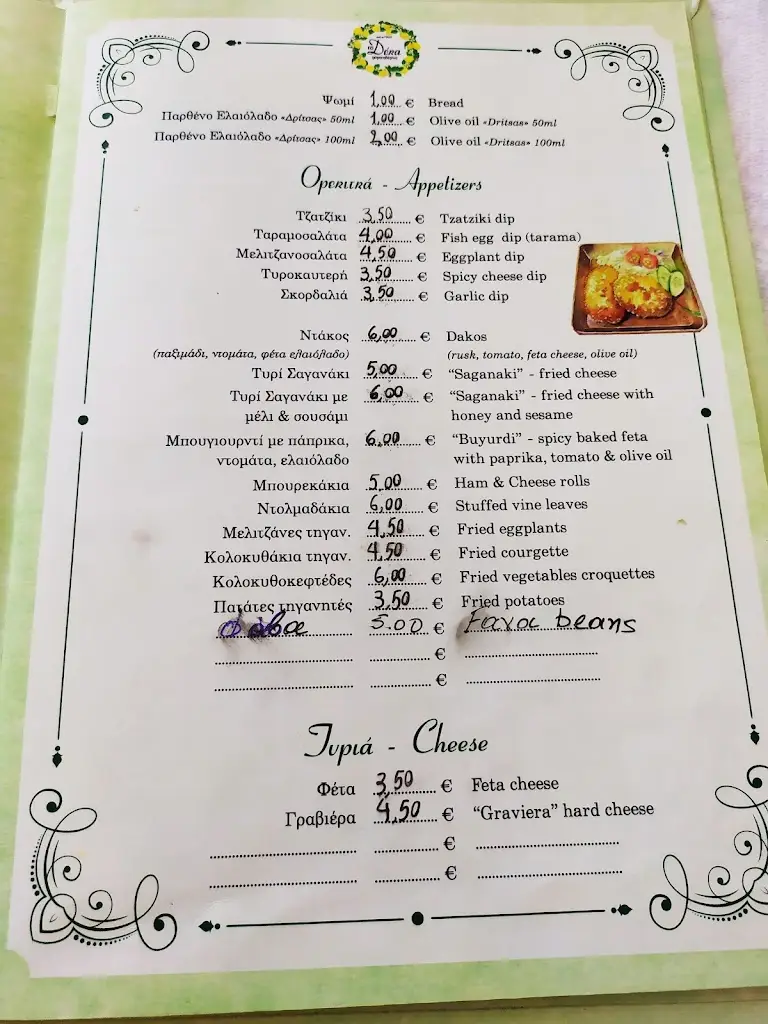 Δόκα
Ψωμί 1,00 € Bread
Παρθένο Ελαιόλαδο «Δρίτσας» 50ml 1,00 € Olive oil «Dritsas» 50ml
Παρθένο Ελαιόλαδο «Δρίτσας» 100ml 2,00 € Olive oil «Dritsas» 100ml
Ορεκτικά - Appetizers
Τζατζίκι 3,50 € Tzatziki dip
Ταραμοσαλάτα 4,00 € Fish egg dip (tarama)
Μελιτζανοσαλάτα 4,50 € Eggplant dip
Τυροκαυτερή 3,50 € Spicy cheese dip
Σκορδαλιά 3,50 € Garlic dip
Ντάκος 6,00 € Dakos
(παξιμάδι, ντομάτα, φέτα ελαιόλαδο) (rusk, tomato, feta cheese, olive oil)
Τυρί Σαγανάκι 5,00 € “Saganaki” - fried cheese
Τυρί Σαγανάκι με 6,00 € “Saganaki” - fried cheese with
μέλι & σουσάμι honey and sesame
Μπουγιουρντί με πάπρικα, 6,00 € “Buyurdi” - spicy baked feta
ντομάτα, ελαιόλαδο with paprika, tomato & olive oil
Μπουρεκάκια 5,00 € Ham & Cheese rolls
Ντολμαδάκια 6,00 € Stuffed vine leaves
Μελιτζάνες τηγαν. 4,50 € Fried eggplants
Κολοκυθάκια τηγαν. 4,50 € Fried courgette
Κολοκυθοκεφτέδες 6,00 € Fried vegetables croquettes
Πατάτες τηγανητές 3,50 € Fried potatoes
Φάβα 5.00 € Fava beans
€
€
Τυριά - Cheese
Φέτα 3,50 € Feta cheese
Γραβιέρα 4,50 € “Graviera” hard cheese
€
€